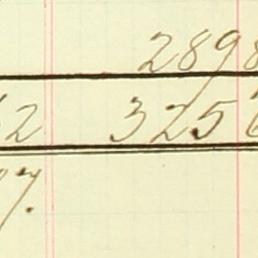 2898
2 3256
7.